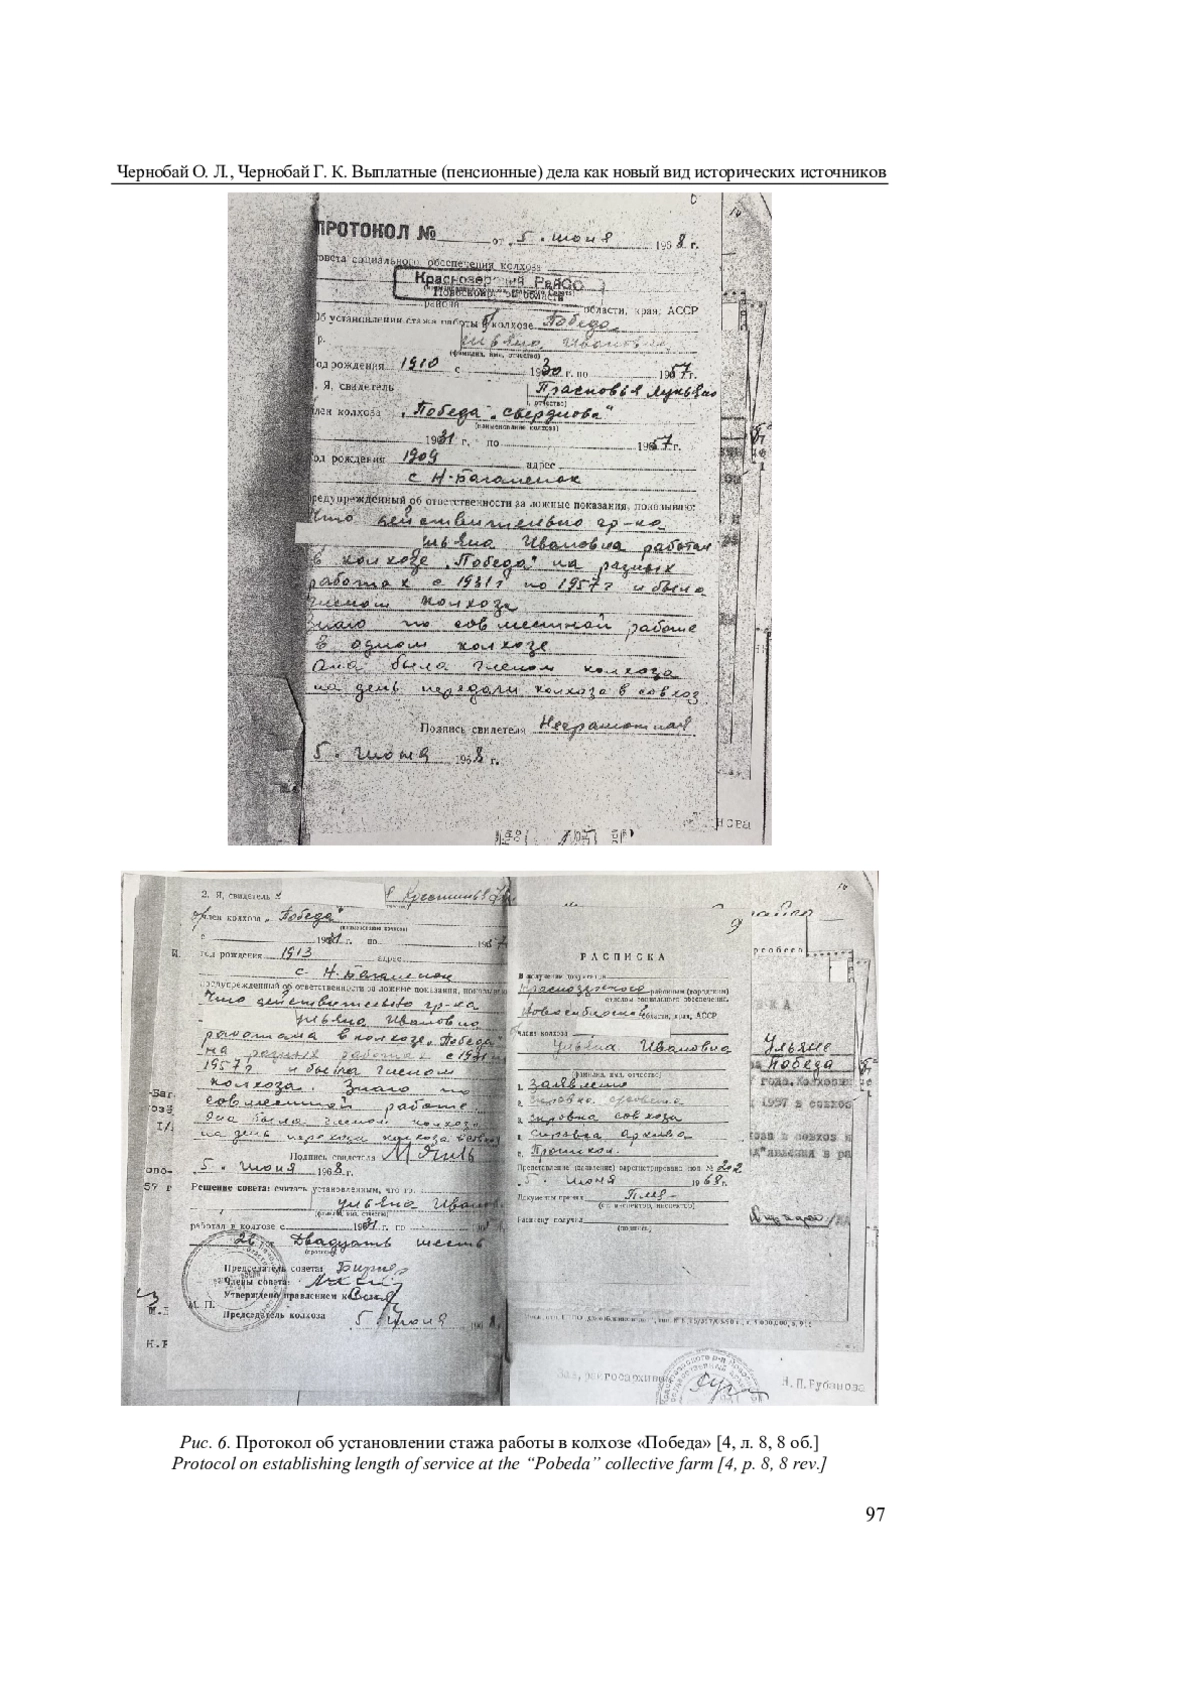 Чернобай О. Л., Чернобай Г. К. Выплатные (пенсионные) дела как новый вид исторических источников
ПРОТОКОЛ № от „5. июня 1968 г.
овета социального обеспечения колхоза
Краснозерский РайСО
Новосибир
района области, края, АССР
Об установлении стажа работы в колхозе Победа
р. ульяна Ивановна
(фамилия, имя, отчество)
од рождения 1910 с 1930 г. по 1957 г.
Я, свидетель Прасковья Лукьяно
лен колхоза „Победа" „свердлова"
(наименование колхоза)
1931 г. по 1957 г.
од рождения 1909 адрес
с Н-Баганенок
редупрежденный об ответственности за ложные показания, показываю:
Что действительно гр-ка
ульяна Ивановна работал
в колхозе „Победа" на разных
работах с 1931 г по 1957 г и была
членом колхоза
Знаю по совместной работе
в одном колхозе
Она была членом колхоза
на день передачи колхоза в совхоз
Подпись свидетеля Неграмотная
5. июня 1968 г.
НОВА
2. Я, свидетель
член колхоза „Победа"
(наименование колхоза)
с 1931 г. по 1957
год рождения 1913 адрес
с. Н-Баганенок
предупрежденный об ответственности за ложные показания, показываю
Что действительно гр-ка
ульяна Ивановна
работала в колхозе „Победа"
на разных работах с 1931 г
1957 г и была членом
колхоза. Знаю по
совместной работе
Она была членом колхоза
на день перехода колхоза в совхоз
Подпись свидетеля
5. июня 1968 г.
Решение совета: считать установленным, что гр.
ульяна Иванов
(фамилия, имя, отчество)
работал в колхозе с 1931 г. по
26 Двадцать шесть
Председатель совета
Члены совета:
Утверждено правлением к
М. П.
Председатель колхоза 5 Июня 1968
РАСПИСКА
В получении документов
Краснозерского районным (городским)
отделом социального обеспечения,
Новосибирской области, края, АССР
член колхоза
Ульяна Ивановна
(фамилия, имя, отчество)
1. Заявление
2. Справка
3. Справка совхоза
4. Справка архива
Представление (заявление) зарегистрировано под № 202
„5" июня 1968 г.
Документы принял
(ст. инспектор, инспектор)
Расписку получил
(подпись)
Ульяне
Победа
года. Колхозни
1957 в совхоз
Зав. райгосархивом
Н.П.Губанова
Рис. 6. Протокол об установлении стажа работы в колхозе «Победа» [4, л. 8, 8 об.]
Protocol on establishing length of service at the “Pobeda” collective farm [4, p. 8, 8 rev.]
97